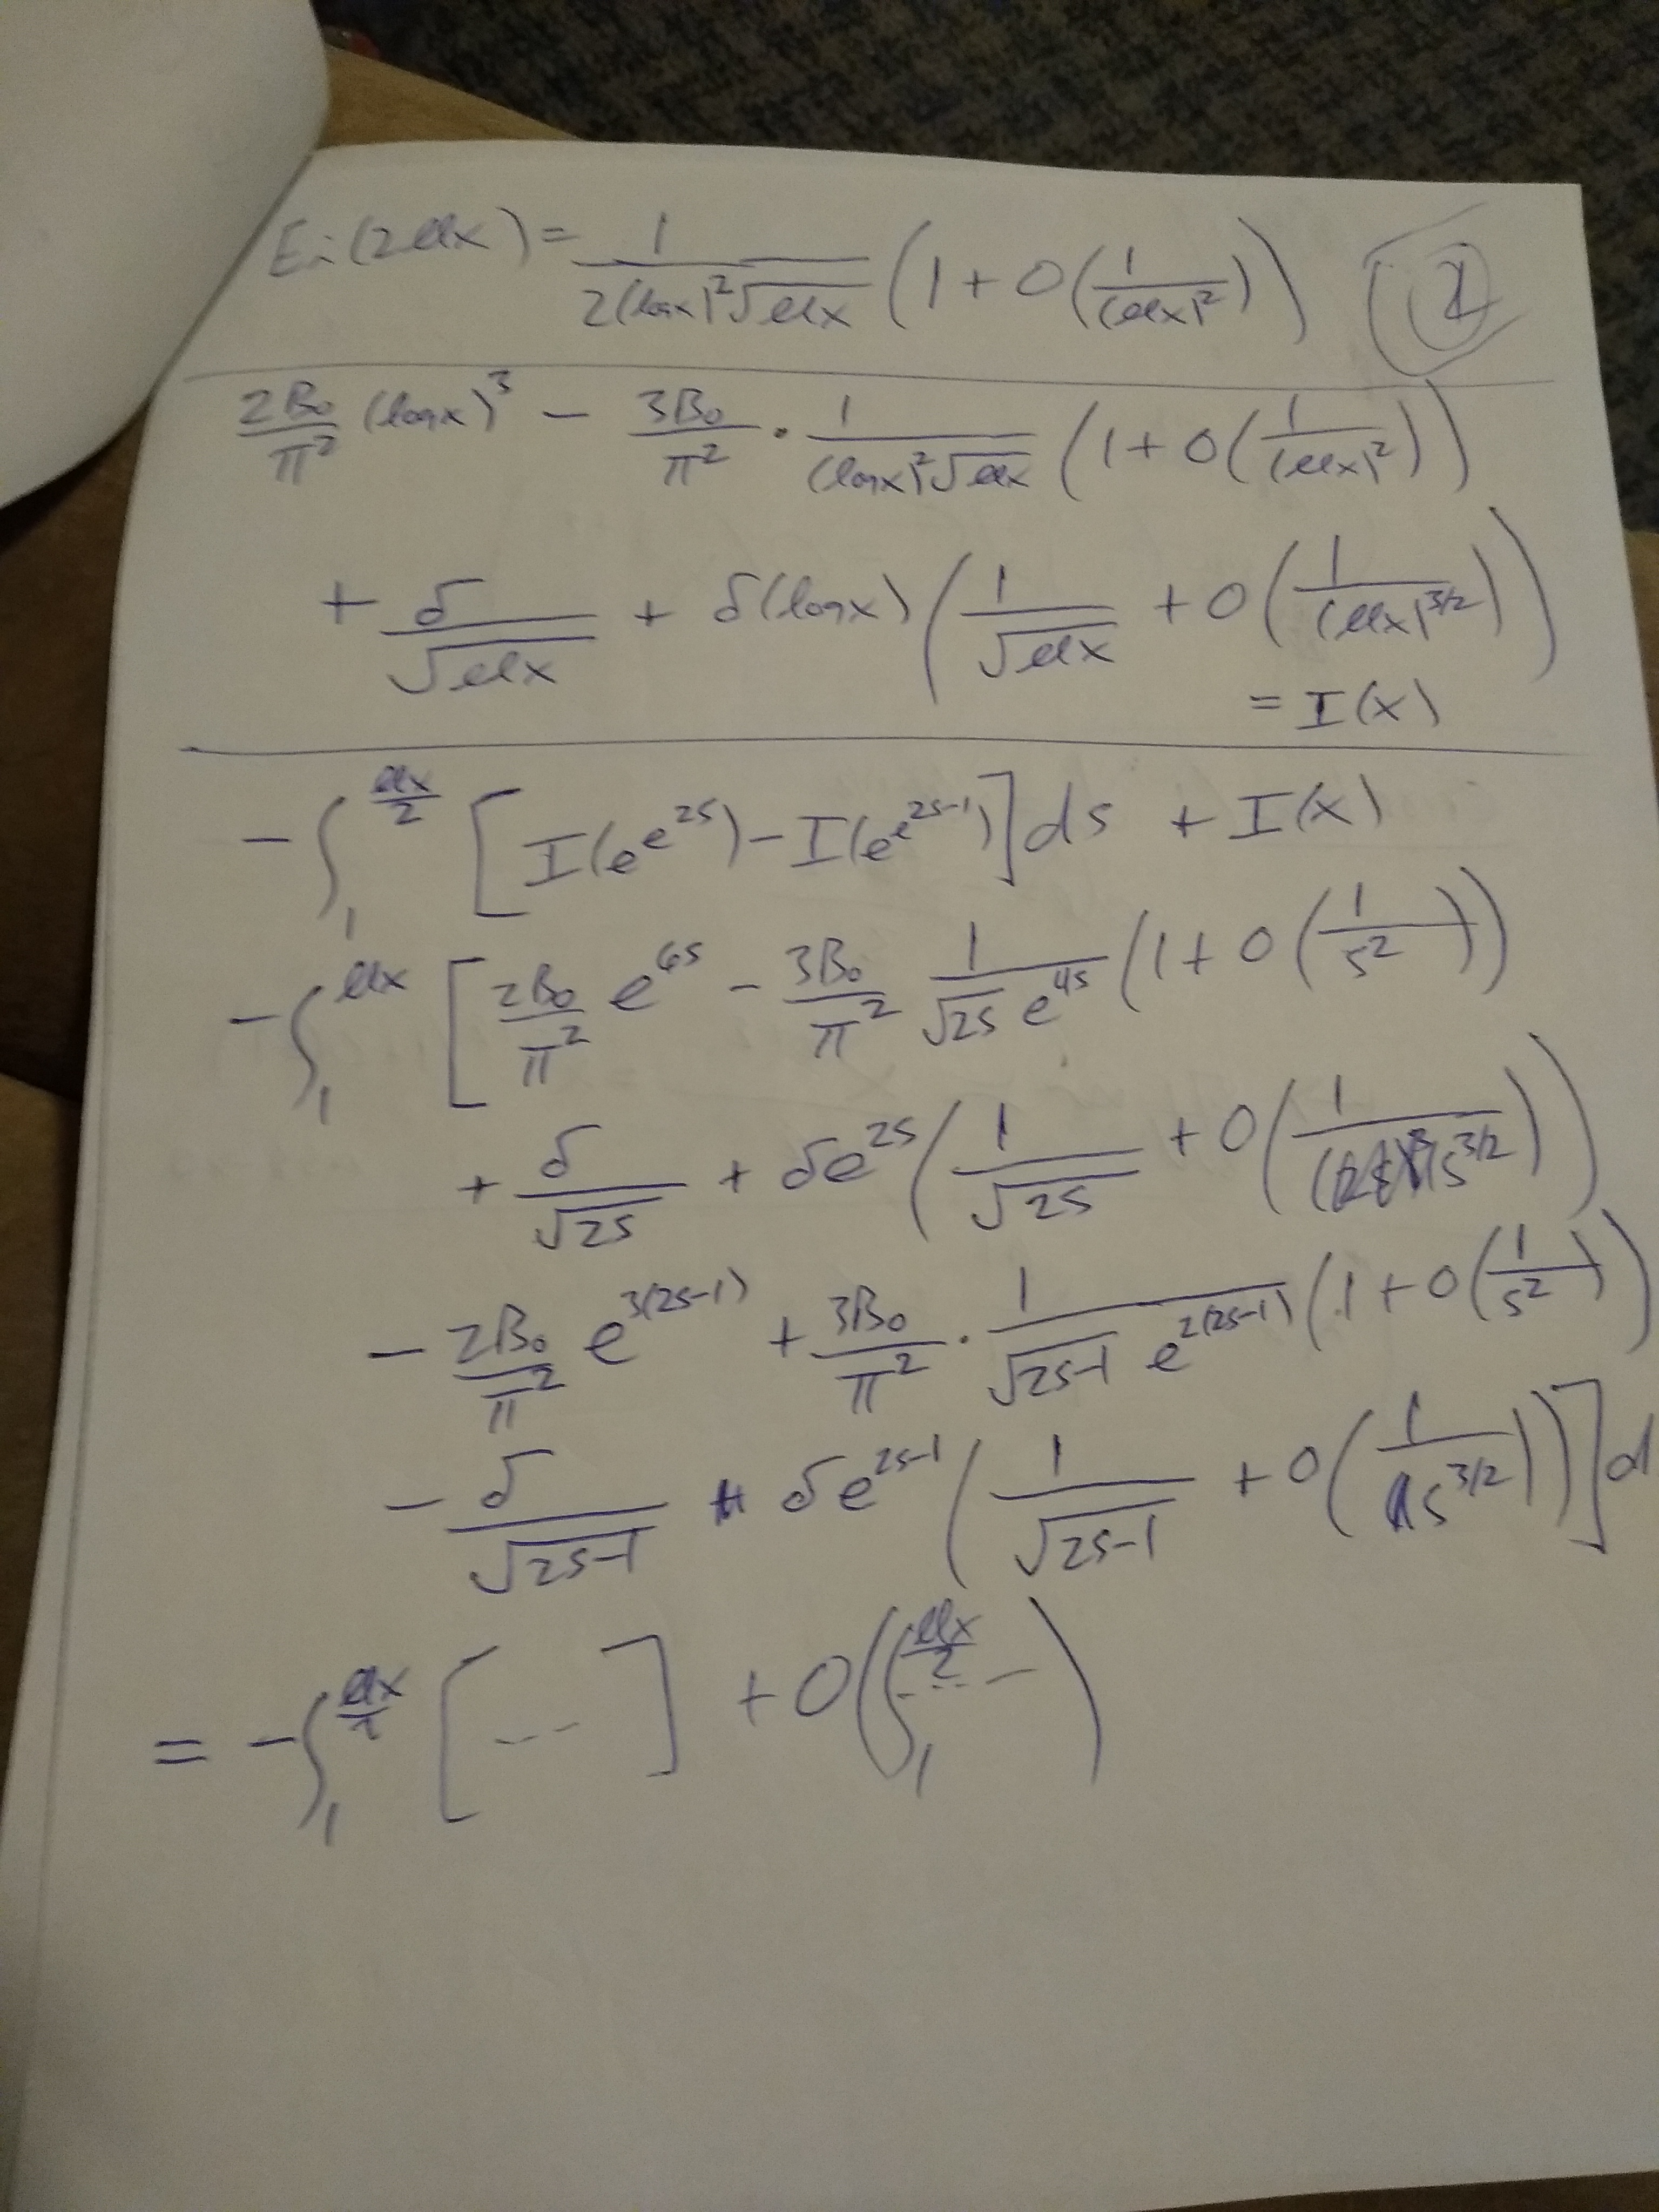 Ei(2llx) = 1/(2(logx)²√llx) (1 + O(1/(llx)²)) (1)
2B₀/π² (logx)³ − 3B₀/π² · 1/((logx)²√llx) (1 + O(1/(llx)²))
+ δ/√llx + δ(logx) (1/√llx + O(1/(llx)^{3/2}))
= I(x)
− ∫₁^{llx/2} [I(e^{e^{2s}}) − I(e^{e^{2s-1}})] ds + I(x)
− ∫₁^{llx} [2B₀/π² e^{6s} − 3B₀/π² 1/(√2s e^{4s}) (1 + O(1/s²))
+ δ/√2s + δe^{2s} (1/√2s + O(1/s^{3/2}))
− 2B₀/π² e^{3(2s-1)} + 3B₀/π² · 1/(√2s-1 e^{2(2s-1)}) (1 + O(1/s²))
− δ/√2s-1 + δe^{2s-1} (1/√2s-1 + O(1/s^{3/2}))] d
= − ∫₁^{llx/2} [---] + O(∫₁^{llx/2} ----)